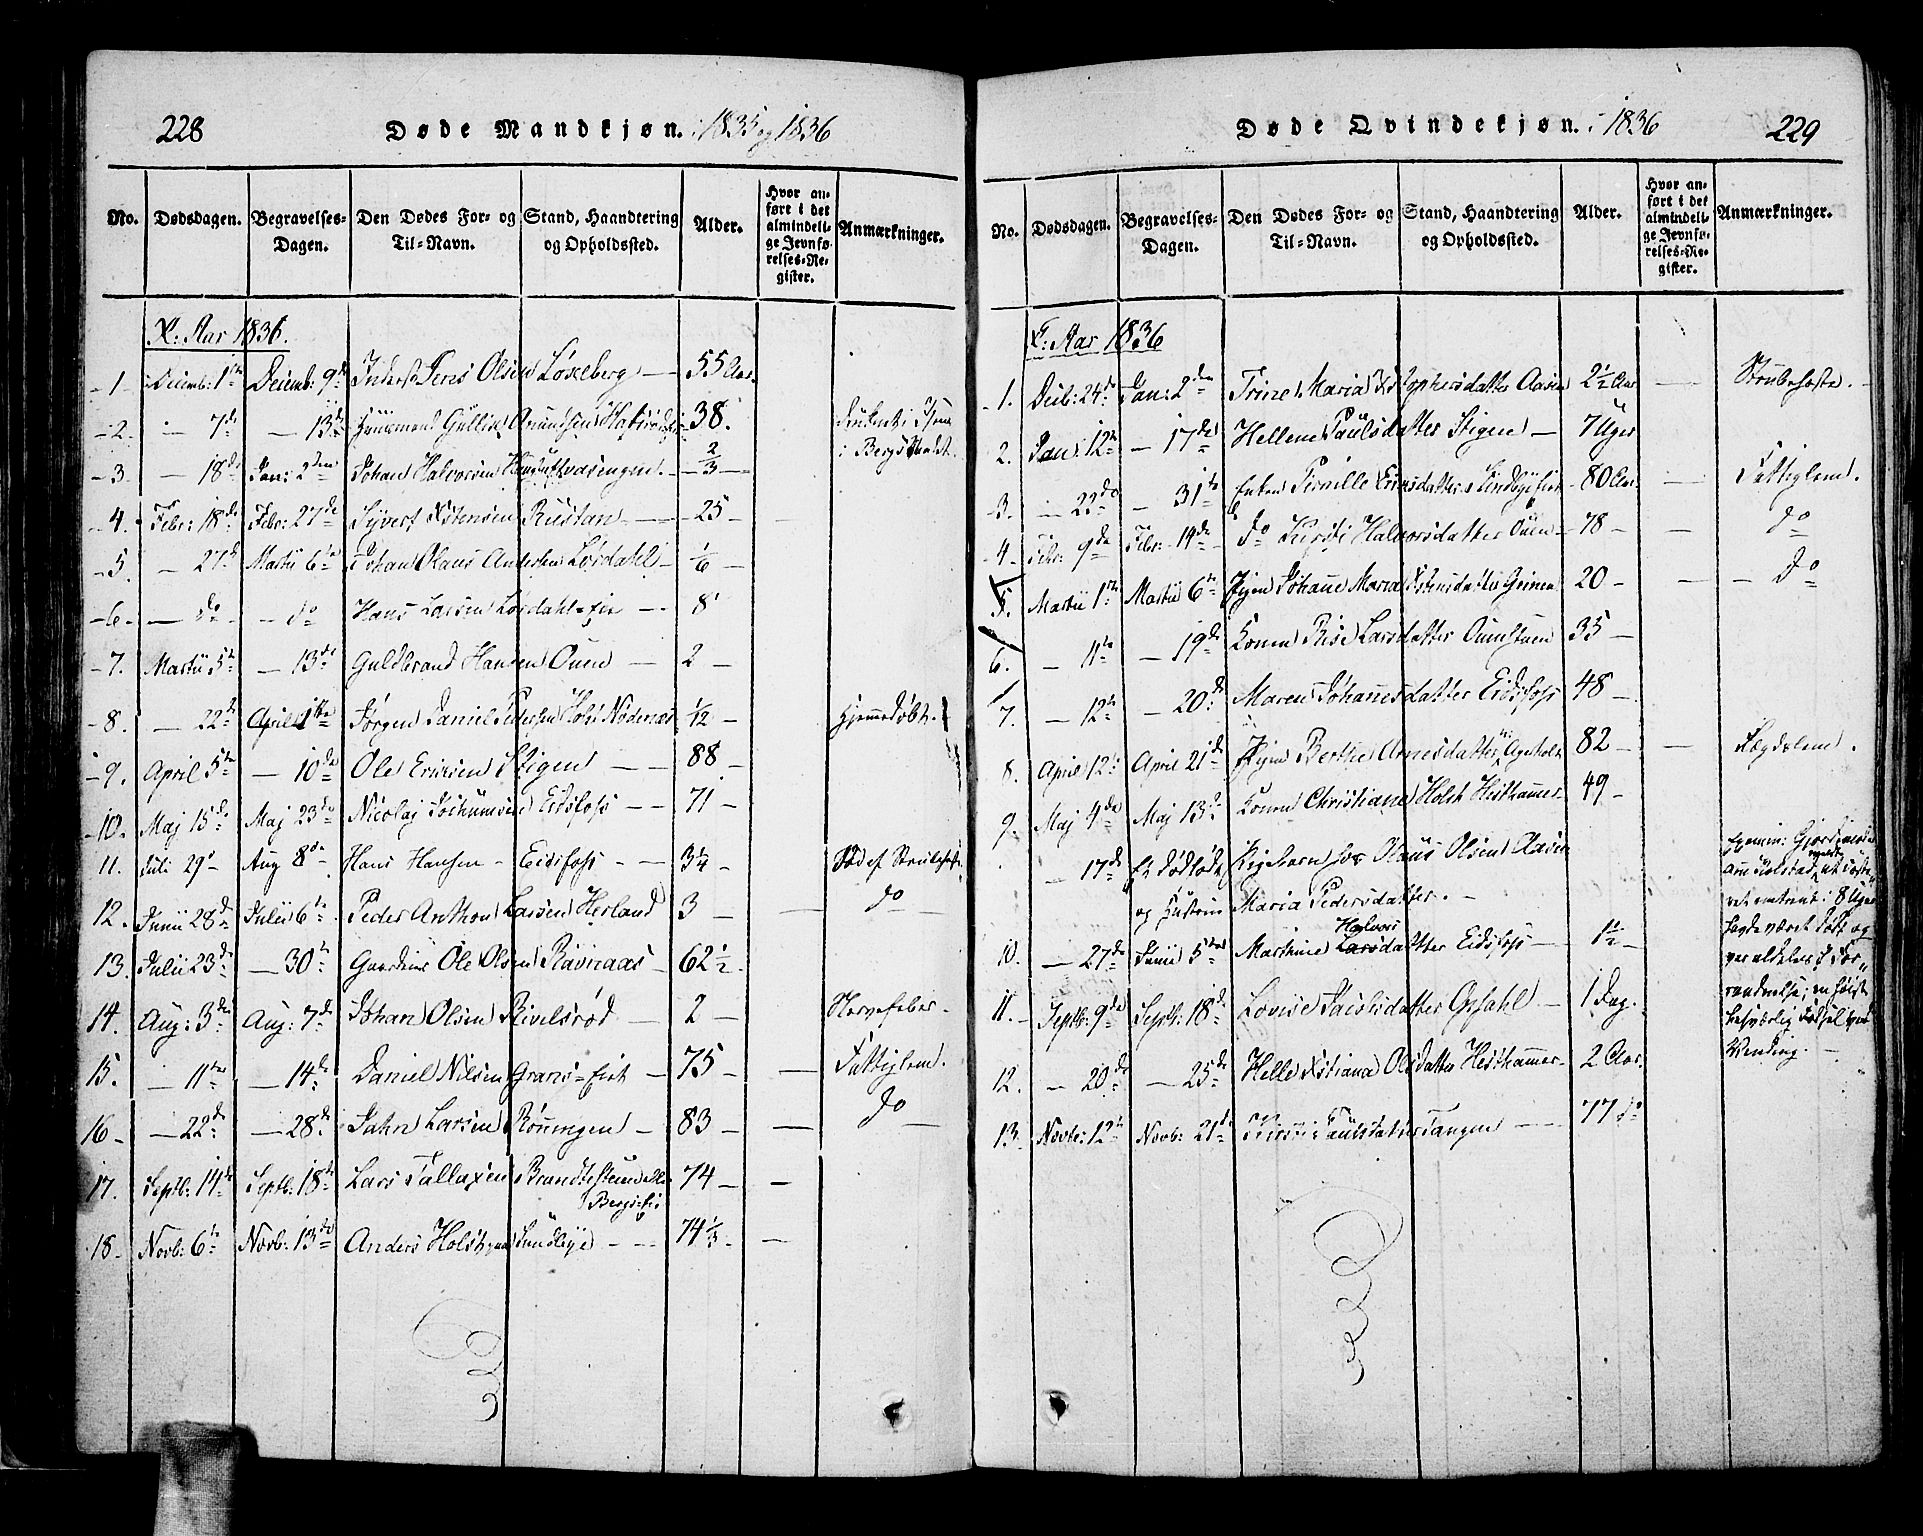 228 Døde Mandkjøn. i 1835 og 1836
No. Dødsdagen. Begravelses-Dagen. Den Dødes For- og Til-Navn. Stand, Haandtering og Opholdssted. Alder. Hvor anført i det almindelige Jevnførelses-Register. Anmærkninger.
K: Aar 1836.
1. Decemb: 1ste Decemb: 9de Jens Olsen Løseberg 55 Aar
2. 7de 13de 38.
3. 18de Jan: 2den Johan Halvorsen 2/3
4. Febr: 18de Febr: 27de Syvert Xstensen Rustan 25
5. 27de Martii 6te Johan Claus Andersen Lørdahl 1/6
6. do do Hans Larsen Lørdahl-eie 8
7. Martii 5te 13de Guldbrand Hansen Ouen 2
8. 22de April 1ste Jørgen Daniel Pedersen Holst Nødenæs 1/12 Hjemmedøbt.
9. April 5te 10de Ole Ericsen Stigen 88
10. Maj 15de Maj 23de Nicolaj Jochumsen Eidsfoss 71
11. Juli 29de Aug 8de Hans Hansen Eidsfoss 3 1/4 Død af
12. Junii 28de Julii 6te Peder Anthon Larsen Herland 3 do
13. Julii 23de 30te Gaardms Ole Olsen Ravnaas 62 1/2
14. Aug: 3die Aug: 7de Johan Olsen Rivelsrød 2 Nervefeber
15. 11te 14de Daniel Nilsen Grans-eie 75 Fattiglem.
16. 22de 28de Jahn Larsen Rønningen 83 do
17. Septb: 14de Septb: 18de Lars Tallaxen 74
18. Novb: 6te Novb: 13de Anders Holst 74 1/3
Døde Qvindekjøn. i 1836 229
No. Dødsdagen. Begravelses-Dagen. Den Dødes For- og Til-Navn. Stand, Haandtering og Opholdssted. Alder. Hvor anført i det almindelige Jevnførelses-Register. Anmærkninger.
K: Aar 1836
1. Decb: 24de Jan: 2den Trine Maria Xstophersdatter Aasen 2 1/2 Aar Strubehoste.
2. Jan: 12te 17de Hellene Paulsdatter Stigen 7 Uger
3. 22de 31te Enken Pernille Ericsdatter 80 Aar Fattiglem.
4. Febr: 9de Febr: 14de do Kirsti Halvorsdatter Ouen 78 do
5. Martii 1ste Martii 6te Pigen Johanne Maria Xstensdatter Grinen 20 do
6. 11te 19de Konen Rise Larsdatter Ouestuen 35
7. 12te 20de Maren Johannesdatter Eidsfoss 48
8. April 12te April 21de Pigen Berthe Arnesdatter Ageholt 82 Lægdslem.
9. Maj 4de Maj 13de Konen Christiane Holst Hesthammer 49
17de Et dødfødt Pigebarn for Olaus Olsen Aasen
og Hustrue Maria Pedersdatter.
10. 27de Junii 5te Marthine Halvorsdatter Eidsfoss 1 1/2
11. Septb: 9de Septb: 18de Lovise Opsahl 1 Dag.
12. 20de 25de Helle Xstiana Olsdatter Hesthammer 2 Aar.
13. Novb: 12te Novb: 21de Kirsti Paulsdatter Tangen 77 do